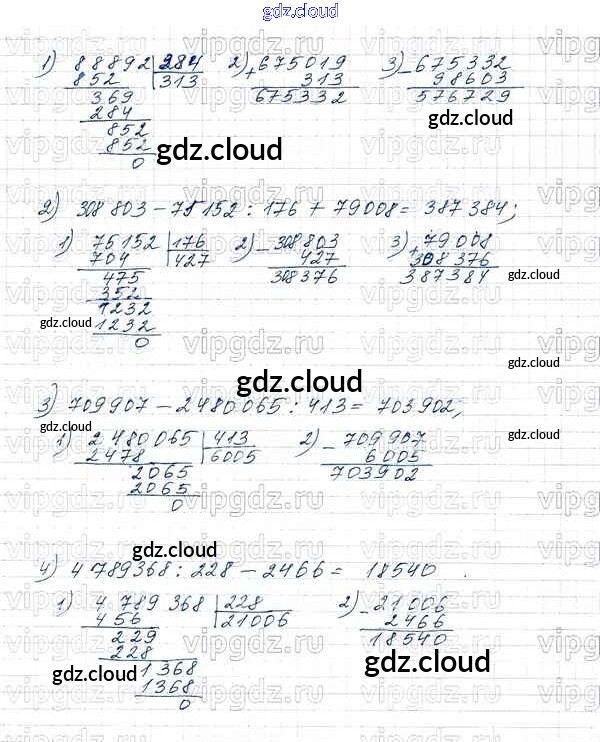 gdz.cloud
1) 88892 284 2) 675019 3) 675332
852 313 + 313 - 98603
369 675332 576729
284
852
852
0
gdz.cloud
2) 308 803 - 75 152 : 176 + 79008 = 387 384;
1) 75152 176 2) - 308803 3) + 79 008
704 427 427 308 376
475 308376 387384
352
1232
1232
0
gdz.cloud gdz.cloud
gdz.cloud
gdz.cloud
3) 709907 - 2480065 : 413 = 703902;
gdz.cloud
1) 2480065 413 2) - 709907
2478 6005 6005
2065 703902
2065
0
gdz.cloud
gdz.cloud
4) 4789368 : 228 - 2466 = 18540.
1) 4 789 368 228 2) - 21006
456 21006 2466
229 18540
228
1368
1368
0
gdz.cloud gdz.cloud gdz.cloud
vipgdz.ru